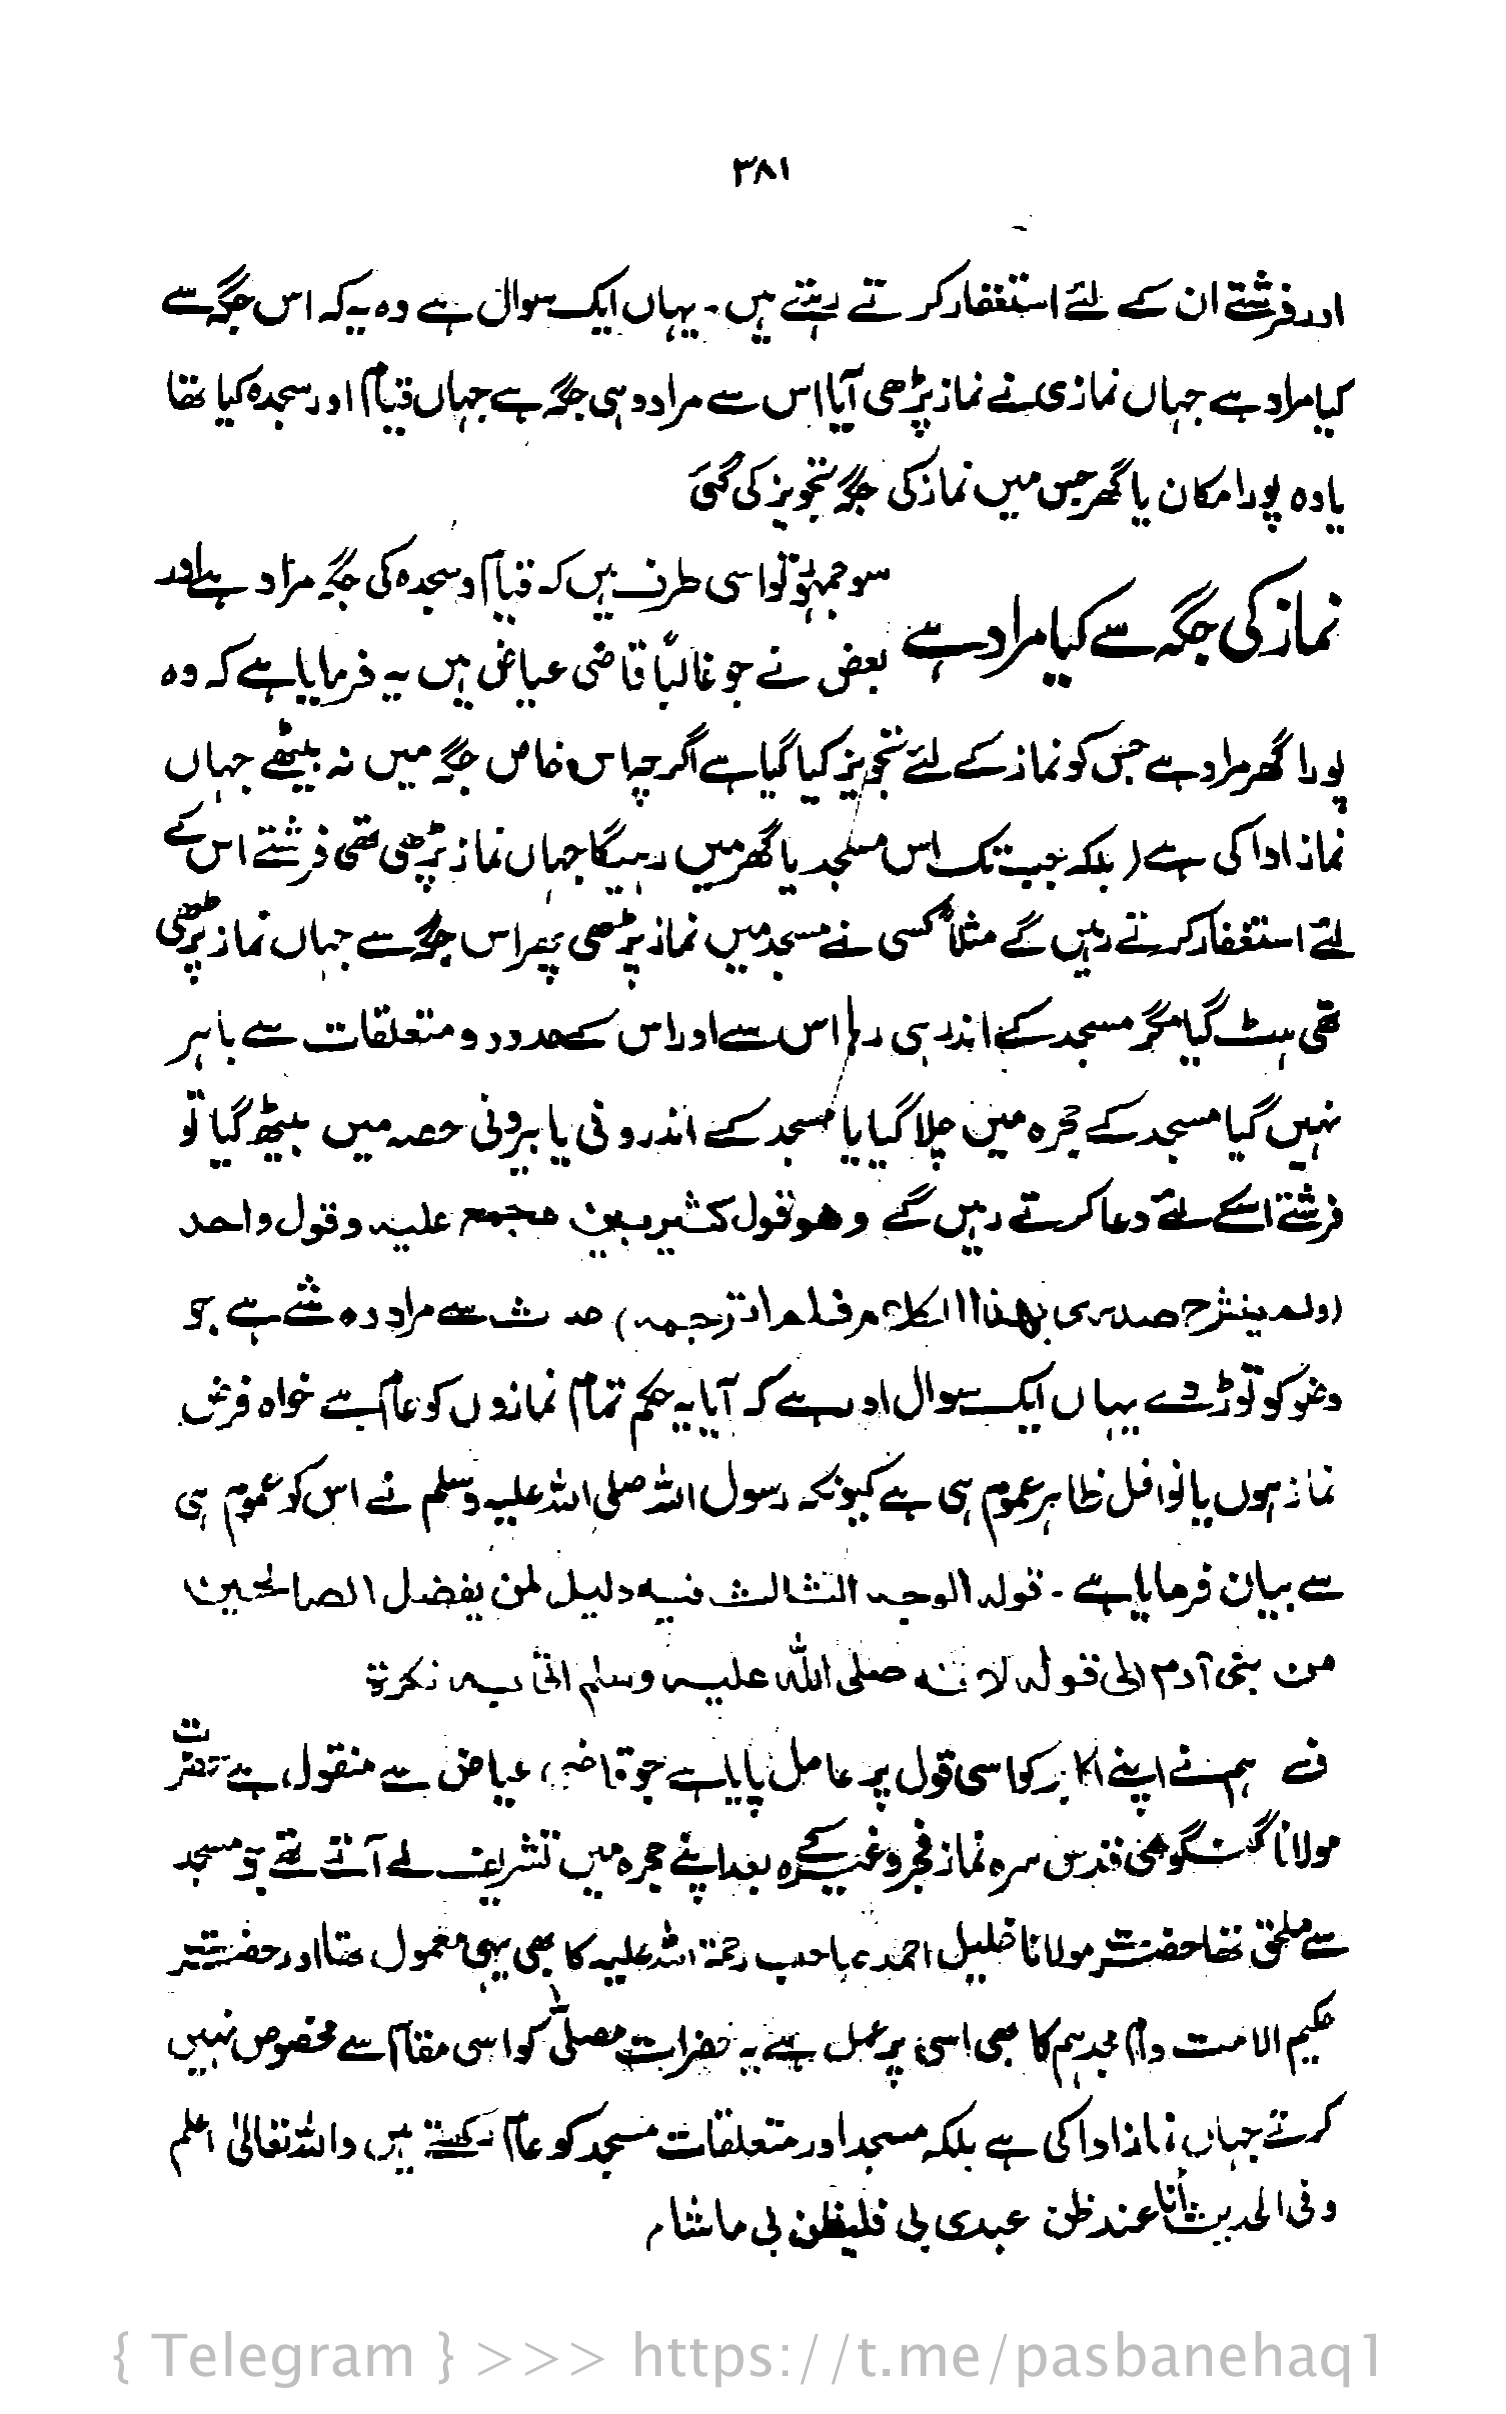 ۳۸۱
اور فرشتے ان کے لئے استغفار کر تے رہتے ہیں ۔ یہاں ایک سوال ہے وہ یہ کہ اس جگہ سے
کیا مراد ہے جہاں نمازی نے نماز پڑھی آیا اس سے مراد وہی جگہ ہے جہاں قیام اور سجدہ کیا تھا
یا وہ پورا مکان یا گھر جس میں نماز کی جگہ تجویز کی گئی
نماز کی جگہ سے کیا مراد ہے
سو جمہور تو اسی طرف ہیں کہ قیام و سجدہ کی جگہ مراد ہے اور
بعض نے جو غالباً قاضی عیاض ہیں یہ فرمایا ہے کہ وہ
پورا گھر مراد ہے جس کو نماز کے لئے تجویز کیا گیا ہے اگرچہ اس خاص جگہ میں نہ بیٹھے جہاں
نماز ادا کی ہے (بلکہ جب تک اس مسجد یا گھر میں رہیگا جہاں نماز پڑھی تھی فرشتے اس کے
لئے استغفار کرتے رہیں گے مثلاً کسی نے مسجد میں نماز پڑھی پھر اس جگہ سے جہاں نماز پڑھی
تھی ہٹ گیا مگر مسجد کے اندر ہی رہا اس سے اور اس کے حدود و متعلقات سے باہر
نہیں گیا مسجد کے حجرہ میں چلا گیا یا مسجد کے اندرونی یا بیرونی حصہ میں بیٹھ گیا تو
فرشتے اسکے لئے دعا کرتے رہیں گے وهو قول كثير بين مجمع عليه وقول واحد
(ولم ينشرح صدرى بهذا الكلام فلم اترجمه) حدث سے مراد وہ شے ہے جو
وضو کو توڑ دے یہاں ایک سوال اور ہے کہ آیا یہ حکم تمام نمازوں کو عام ہے خواہ فرض
نماز ہوں یا نوافل ظاہر عموم ہی ہے کیونکہ رسول اللہ صلی اللہ علیہ وسلم نے اس کو عموم ہی
سے بیان فرمایا ہے ۔ قوله الوجه الثالث فيه دليل لمن يفضل الصالحين
من بنى آدم الى قوله لانه صلى الله عليه وسلم اتى به نكرة
ف ہم نے اپنے اکابر کو اسی قول پر عامل پایا ہے جو قاضی عیاض سے منقول ہے حضرت
مولانا گنگوھی قدس سرہ نماز فجر وغیرہ کے بعد اپنے حجرہ میں تشریف لے آتے تھے جو مسجد
سے ملحق تھا حضرت مولانا خلیل احمد صاحب رحمۃ اللہ علیہ کا بھی یہی معمول تھا اور حضرت
حکیم الامت دام مجدہم کا بھی اسی پر عمل ہے یہ حضرات مصلّی کو اسی مقام سے مخصوص نہیں
کرتے جہاں نماز ادا کی ہے بلکہ مسجد اور متعلقات مسجد کو عام رکھتے ہیں واللہ تعالیٰ اعلم
وفى الحديث أنا عند ظن عبدى بى فليظن بى ماشاء
{ Telegram } >>> https://t.me/pasbanehaq1